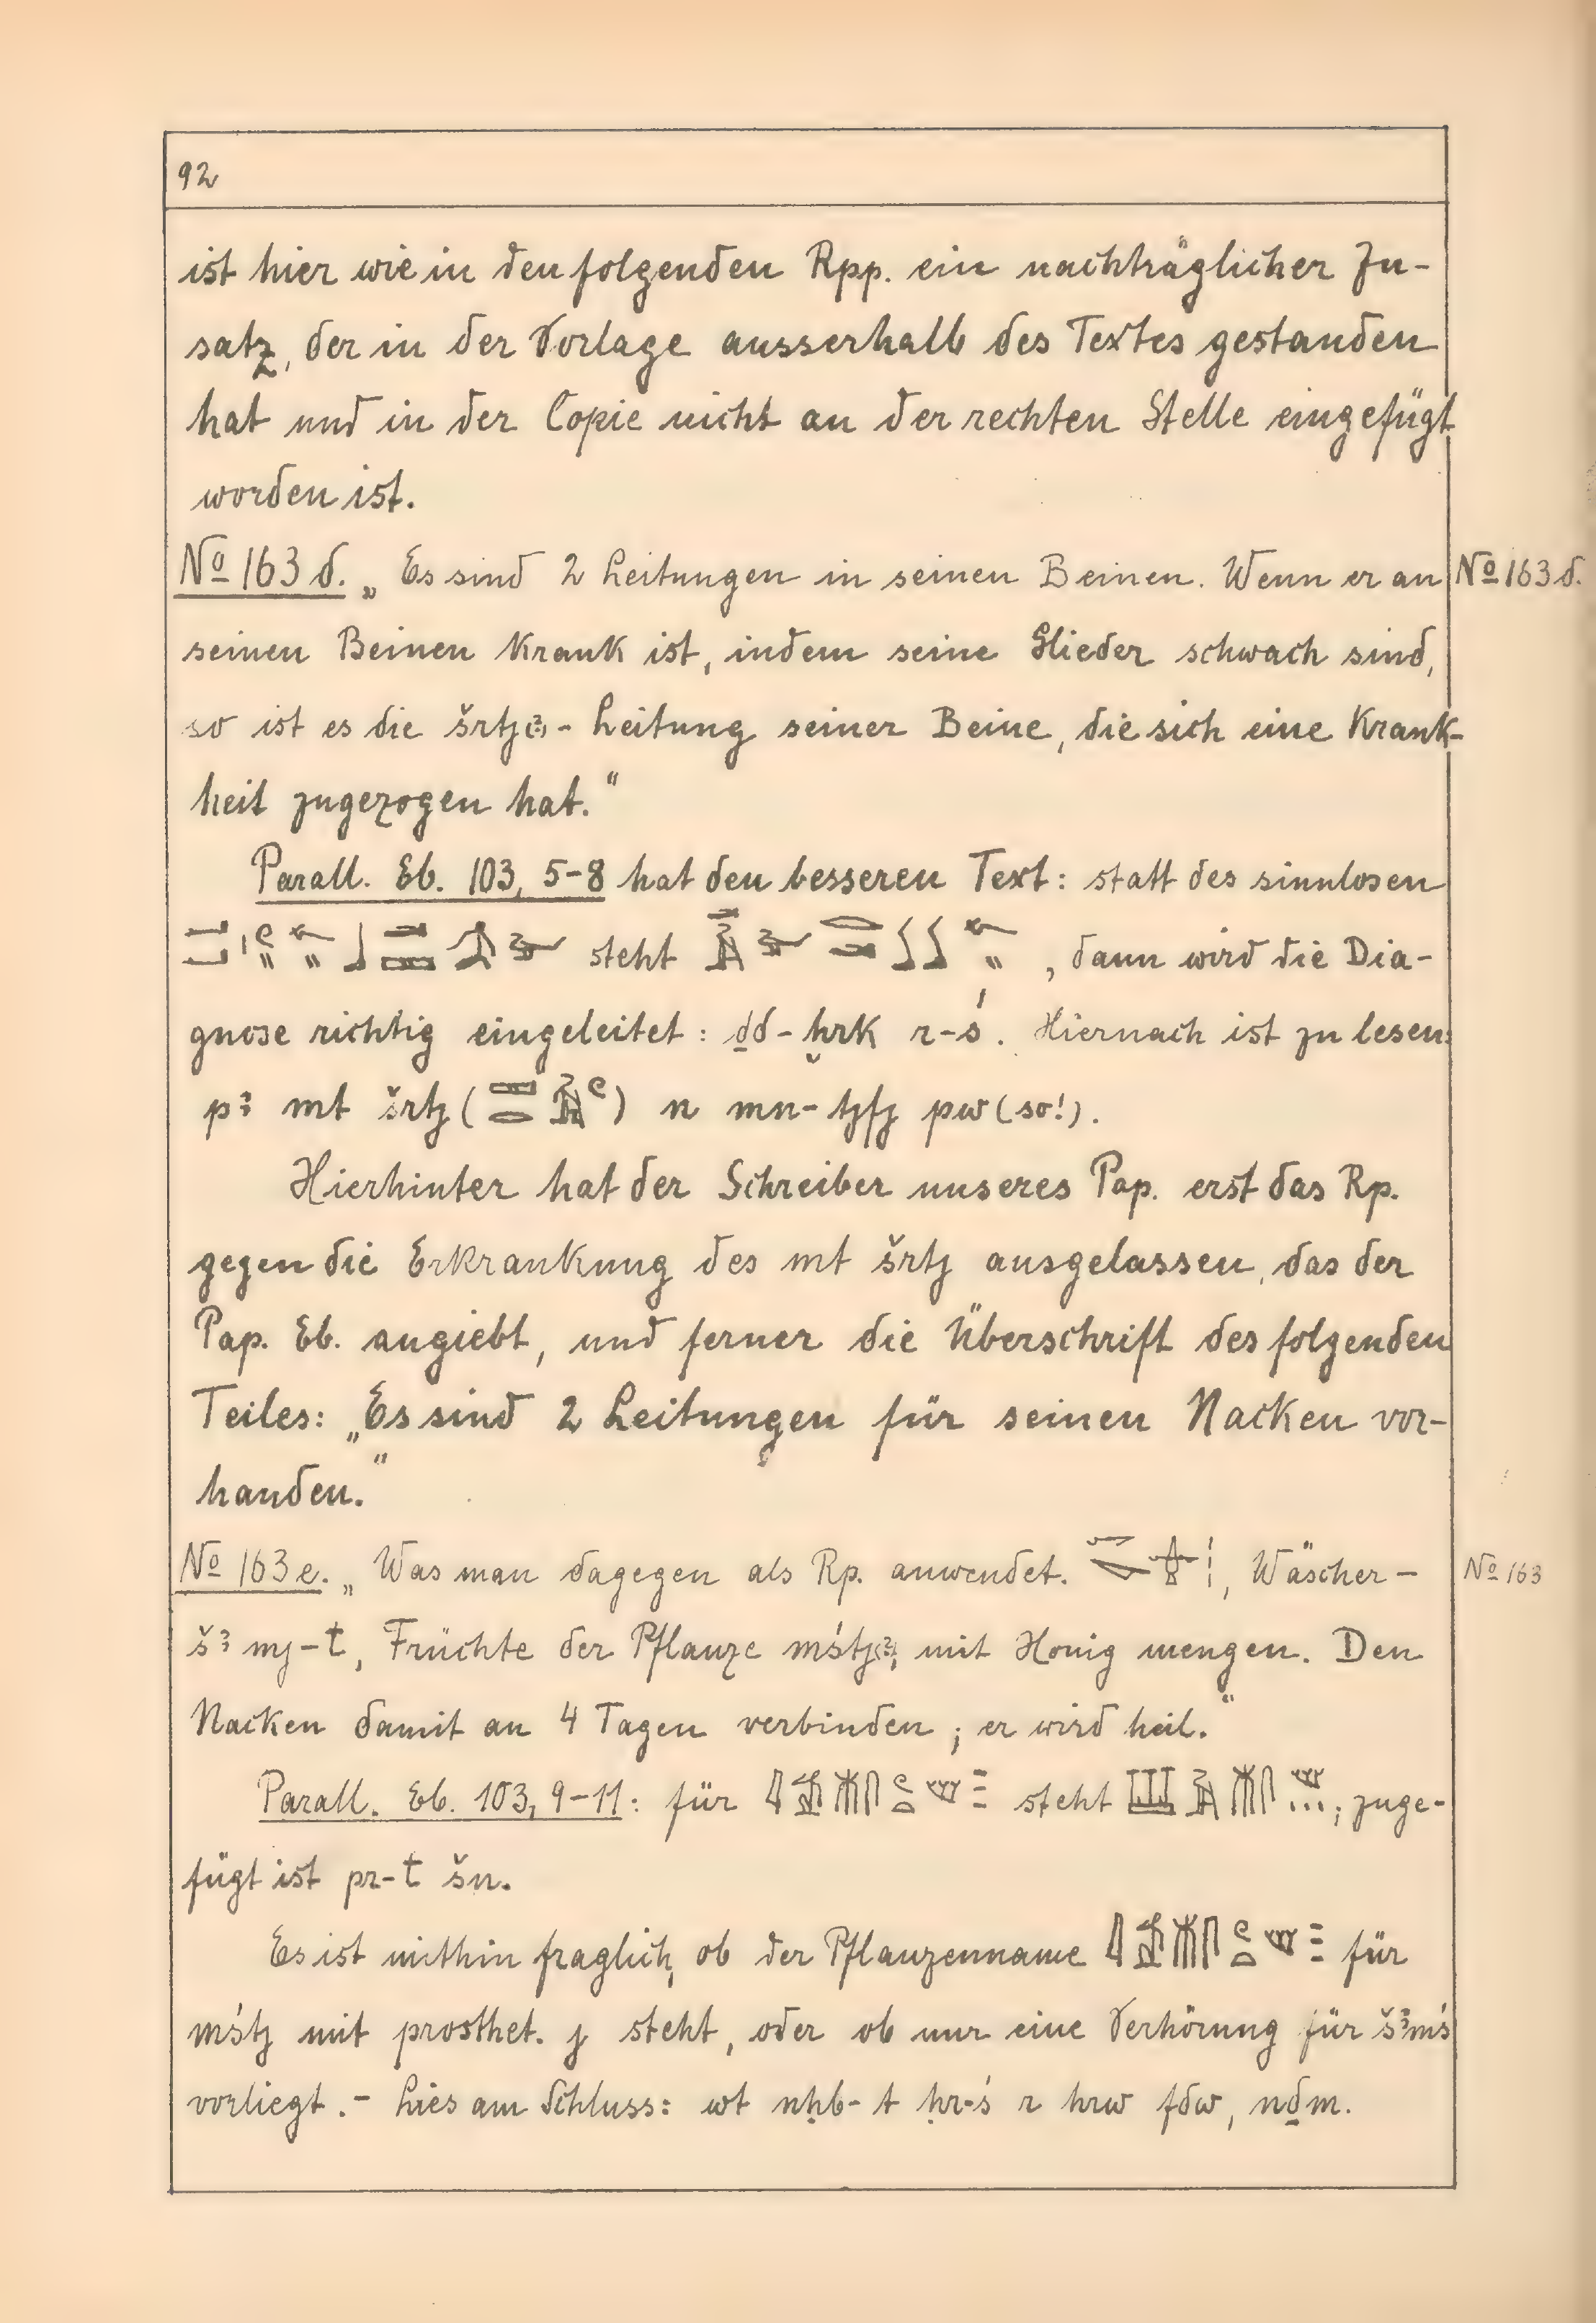 92
ist hier wie in den folgenden Rpp. ein nachträglicher Zu-
satz, der in der Vorlage ausserhalb des Textes gestanden
hat und in der Copie nicht an der rechten Stelle eingefügt
worden ist.
№ 163 d. „Es sind 2 Leitungen in seinen Beinen. Wenn er an № 163 d.
seinen Beinen krank ist, indem seine Glieder schwach sind,
so ist es die šrtj(ꜣ)-Leitung seiner Beine, die sich eine Krank-
heit zugezogen hat.“
Parall. Eb. 103, 5-8 hat den besseren Text: statt des sinnlosen
steht , dann wird die Dia-
gnose richtig eingeleitet: ḏd-ḫrk r-ś. Hiernach ist zu lesen:
pꜣ mt šrtj ( ) n mn-tjfj pw (so!).
Hierhinter hat der Schreiber unseres Pap. erst das Rp.
gegen die Erkrankung des mt šrtj ausgelassen, das der
Pap. Eb. angiebt, und ferner die Überschrift des folgenden
Teiles: „Es sind 2 Leitungen für seinen Nacken vor-
handen.“
№ 163 e. „Was man dagegen als Rp. anwendet. , Wäscher- № 163
šꜣmj-t, Früchte der Pflanze mśtj(ꜣ), mit Honig mengen. Den
Nacken damit an 4 Tagen verbinden; er wird heil.“
Parall. Eb. 103, 9-11: für steht ; zuge-
fügt ist pr-t šn.
Es ist mithin fraglich, ob der Pflanzenname für
mśtj mit prosthet. j steht, oder ob nur eine Verhörung für šꜣmś
vorliegt. - Lies am Schluss: wt nḥb-t ḥr-ś r hrw fdw, nḏm.